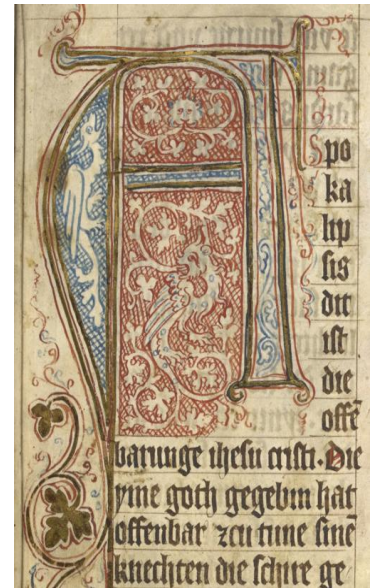 A
Spo
ka
lip
sis
dit
ist
die
offē
barunge ihesu cristi. Die
yme goth gegebin hat
offenbar zcu tune sinē
knechten die schire ge